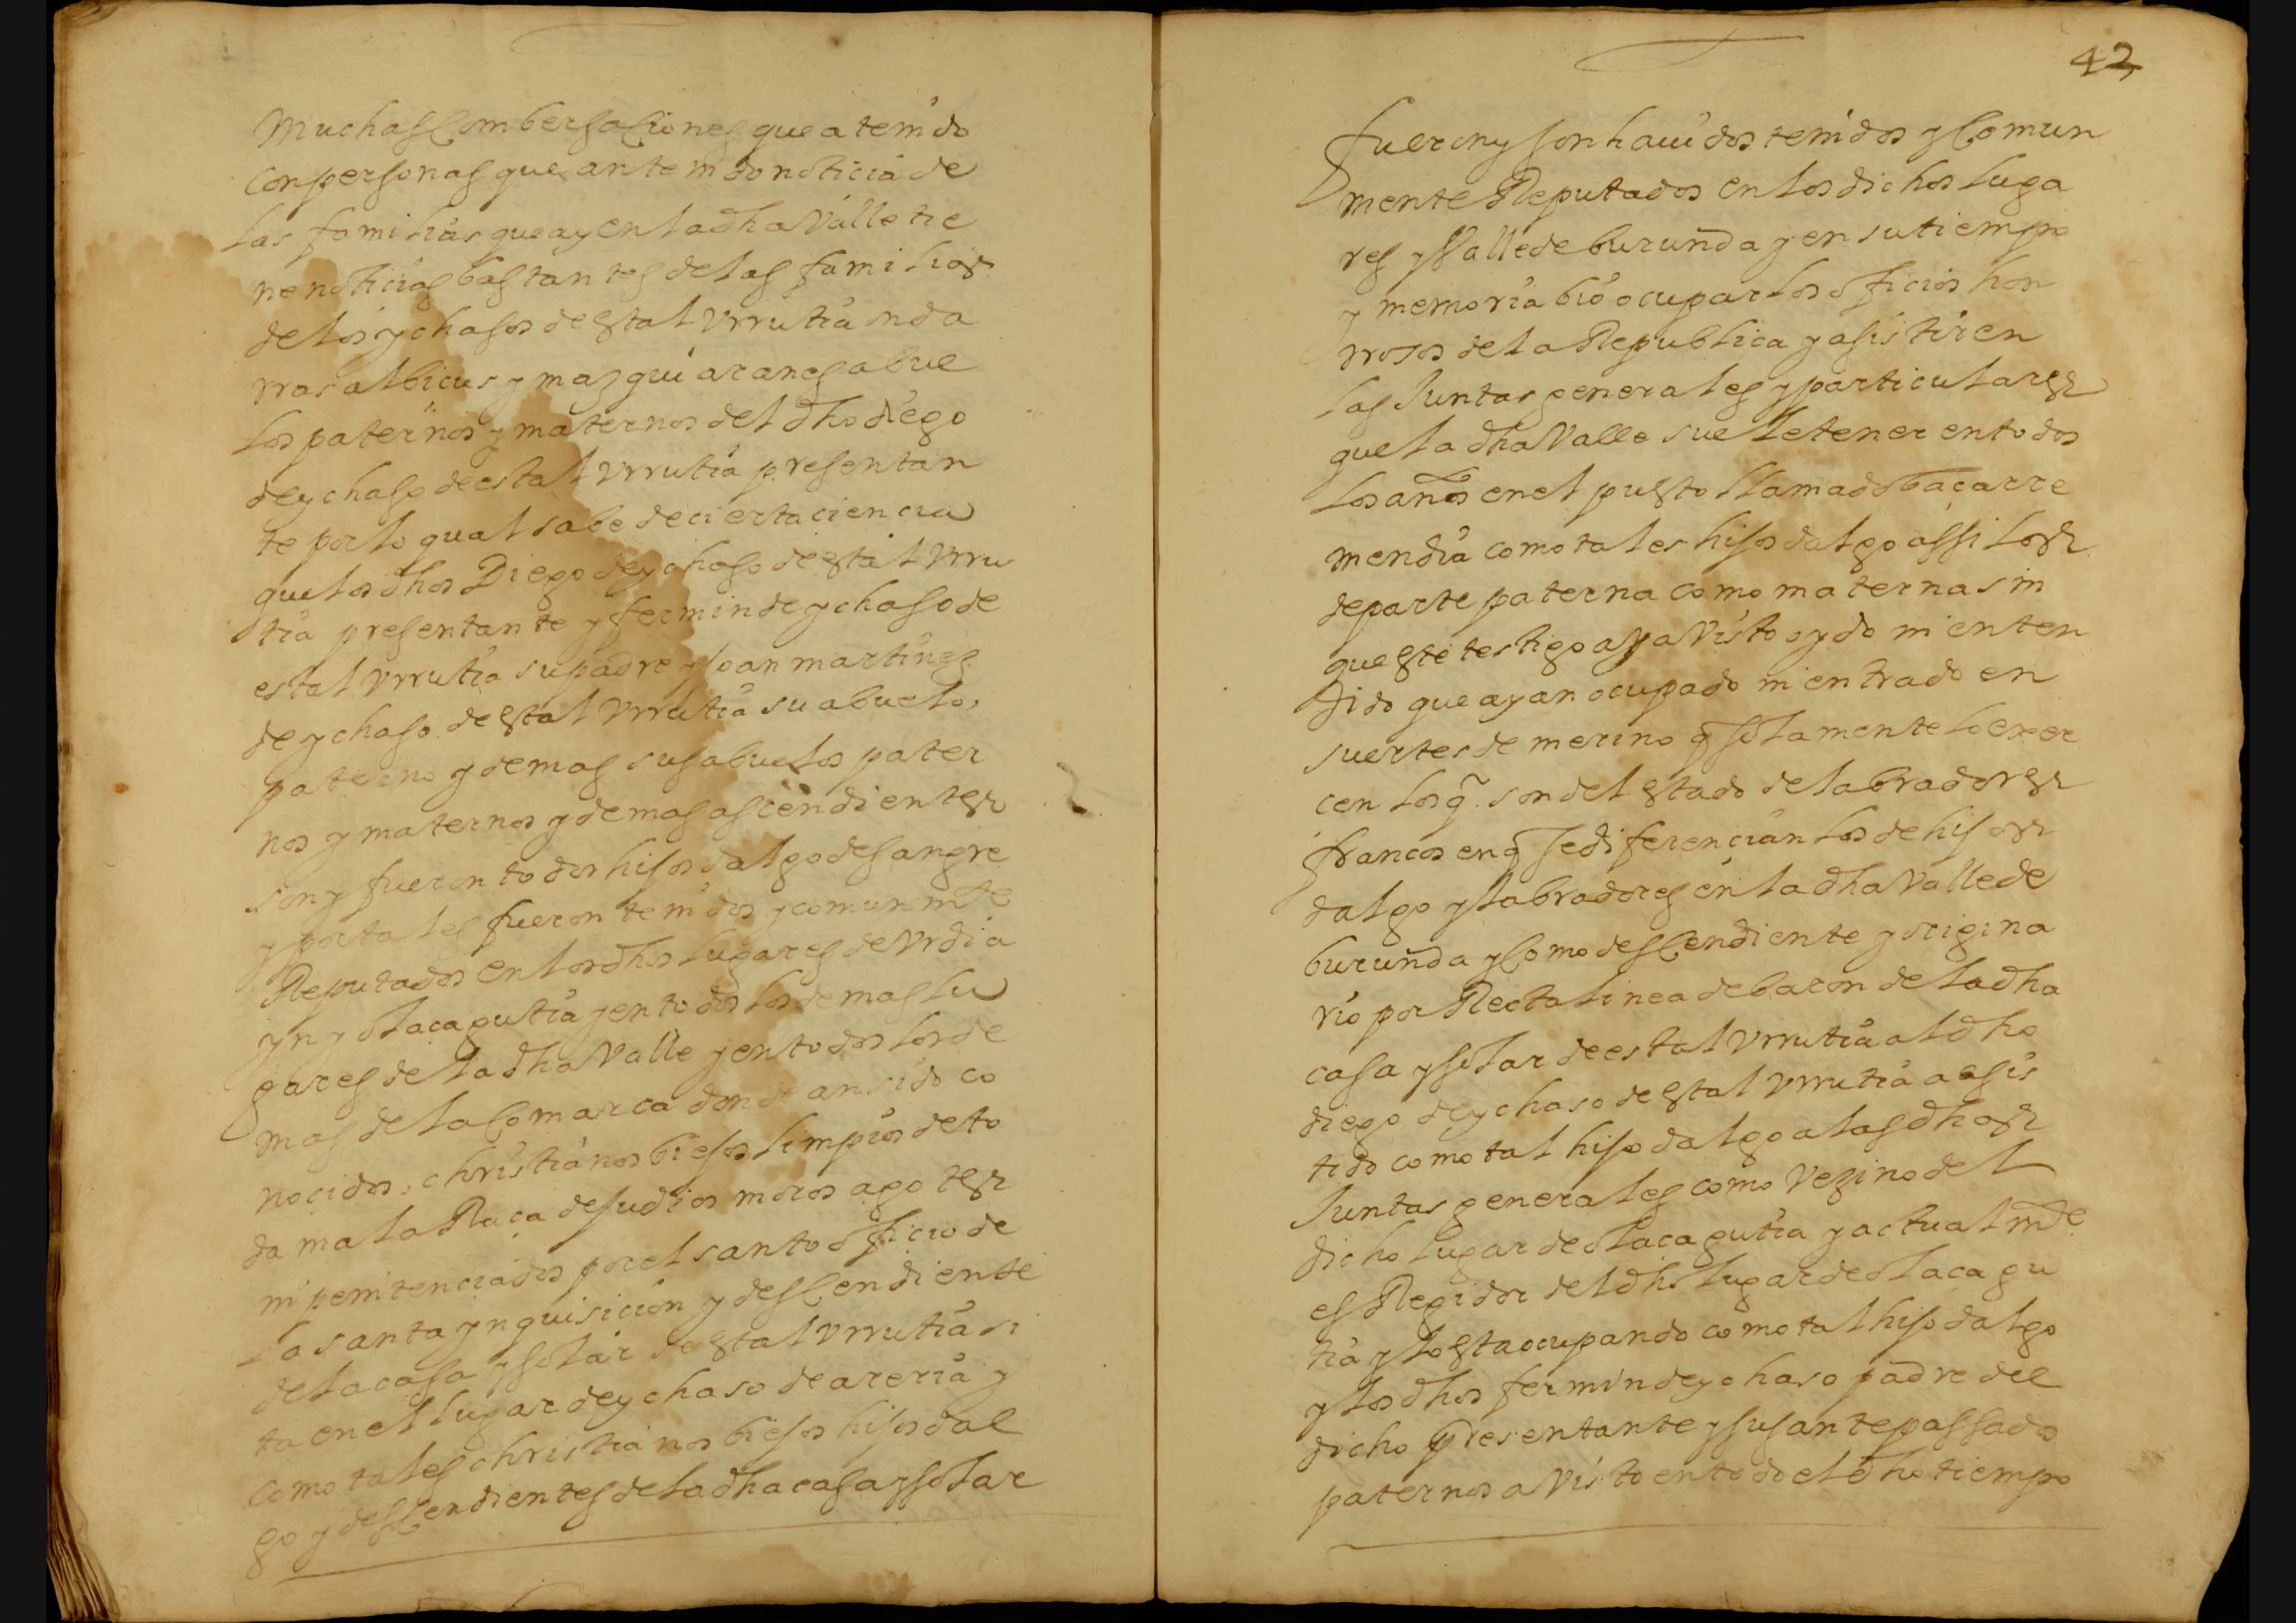 Muchas combersaciones que a tenido
con personas que an tenido noticia de
las familias que ay en la dha Valle tie
ne noticias bastantes de las familias
de los ychasos de estal Vrrutia
albicus y mazquiaranes abue
los paternos y maternos del dho diego
de ychaso de estal Vrrutia presentan
te por lo qual sabe de cierta ciencia
que los dhos Diego de ychaso de estal Vrru
tia presentante y fermin de ychaso de
estal Vrrutia su padre y Joan martines
de ychaso de estal Vrrutia su abuelo,
paterno y demas sus abuelos pater
nos y maternos y demas ascendientes
son y fueron todos hijos dalgo de sangre
y por tales fueron tenidos y comunmte
Reputados en los dhos lugares de Vrdia
yn y olacagutia y en todos los demas lu
gares de la dha Valle y en todos los de
mas de la comarca donde an sido co
nocidos, christianos biejos limpios de to
da mala Raça de judios moros agotes
ni penitenciados por el santo oficio de
la santa ynquisicion y descendiente
de la casa y solar de estal Vrrutia si
ta en el lugar de ychaso de areria y
como tales christianos biejos hijos dal
go y descendientes de la dha casa y solar
42
fueron y son hauidos tenidos y comun
mente Reputados en los dichos luga
res y Valle de burunda y en su tiempo
y memoria bio ocupar los oficios hon
rrosos de la Republica y asistir en
las Juntas generales y particulares
que la dha Valle suele tener en todos
los años en el puesto llamado baçarre
mendia como tales hijos dalgo assi los
de parte paterna como materna sin
que este testigo aya Visto oydo ni enten
dido que ayan ocupado ni entrado en
suertes de merino q solamente lo exer
cen los q. son del estado de labradores
francos en q se diferencian los de hijos
dalgo y labradores en la dha Valle de
burunda y como descendiente y origina
rio por Recta linea de baron de la dha
casa y solar de estal Vrrutia al dho
diego de ychaso de estal Vrrutia a asis
tido como tal hijo dalgo a las dhas
Juntas generales como Vezino del
dicho lugar de olacagutia y actualmte
es Regidor del dho lugar de olacagu
tia y lo esta ocupando como tal hijo dalgo
y los dhos fermin de ychaso padre del
dicho presentante y sus antepassados
paternos a Visto en todo el dho tiempo